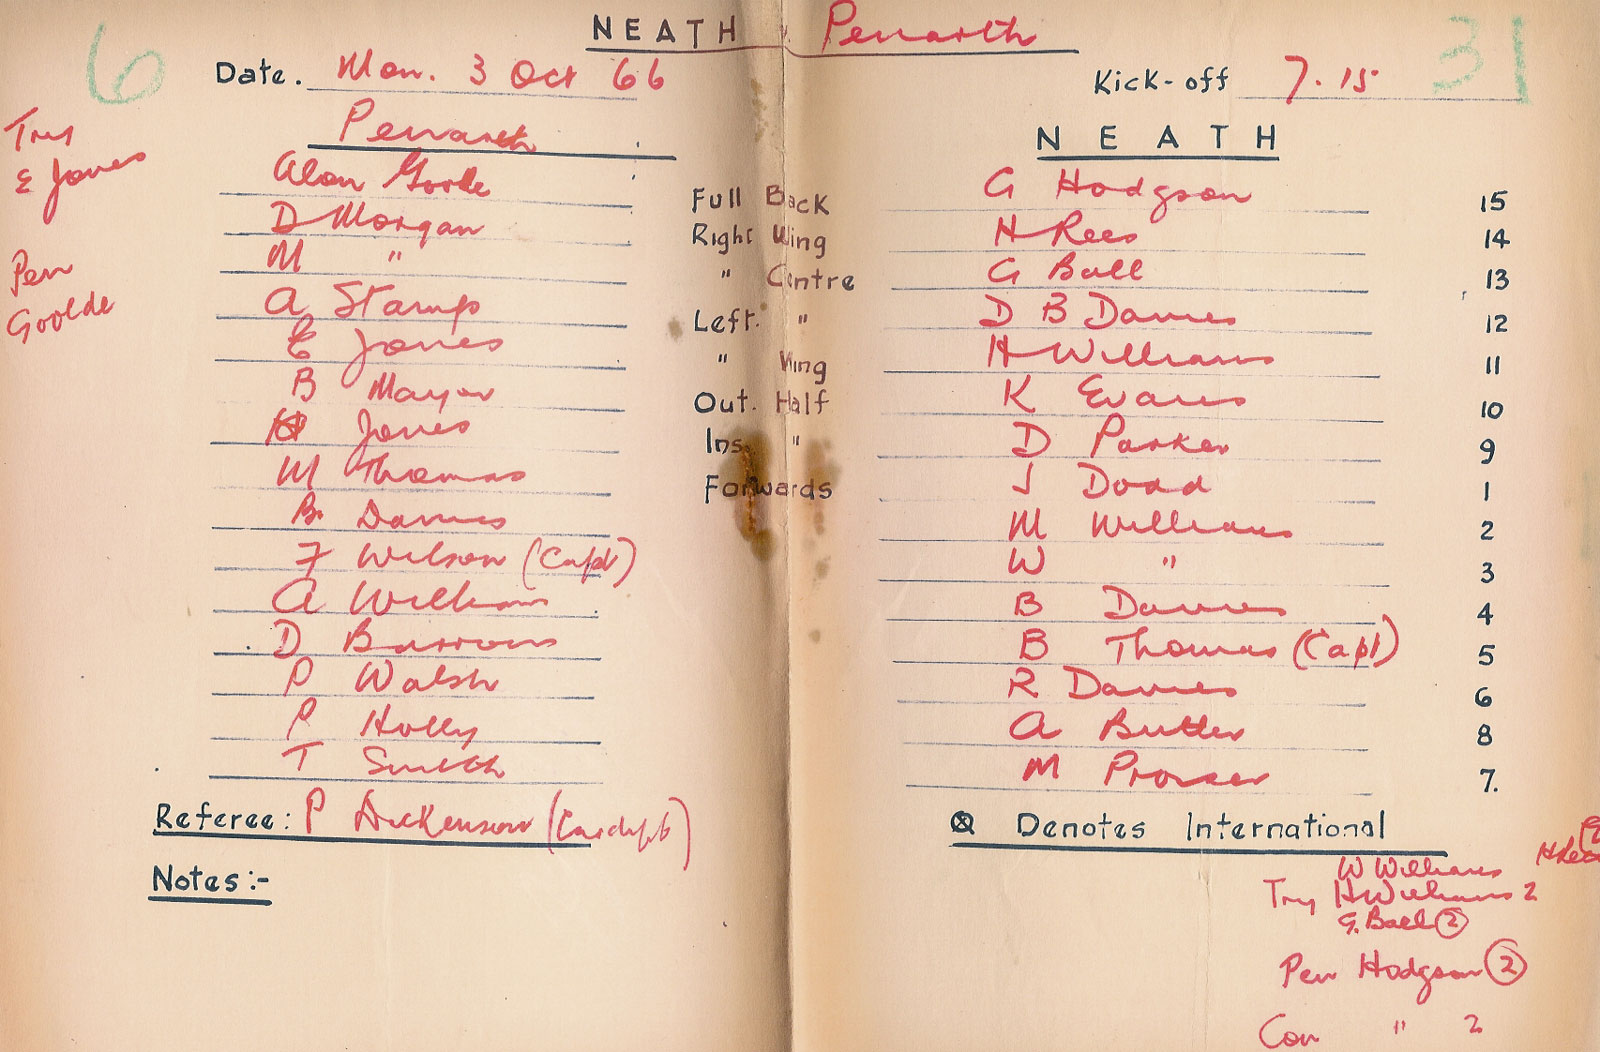 NEATH v Penarth
6 31
Date. Mon. 3 Oct 66 Kick-off 7.15
Penarth NEATH
Try
E Jones
Pen
Goolde
Alan Goolde Full Back G Hodgson 15
D Morgan Right Wing H Rees 14
M " " Centre G Ball 13
A Stamp Left. " D B Davies 12
E Jones " Wing H Williams 11
B Mayor Out. Half K Evans 10
Jones Ins. " D Parker 9
M Thomas Forwards J Dodd 1
B. Davies M Williams 2
F Wilson (Capt) W " 3
A Williams B Davies 4
D Burrows B Thomas (Capt) 5
P Walsh R Davies 6
P Holly A Butler 8
T Smith M Prosser 7.
Referee: P Dickenson (Cardiff) ⊗ Denotes International
Notes:-
H Rees
W Williams
Try H Williams 2
G. Ball 2
Pen Hodgson 2
Con " 2